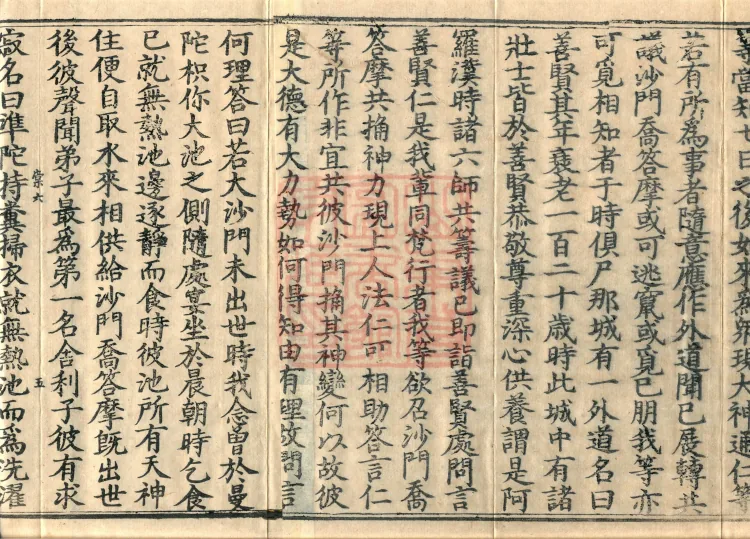 等當知七日之後如來爲衆現大神通仁等
若有所爲事者隨意應作外道聞已展轉共
議沙門喬答摩或可逃竄或覓已朋我等亦
可覓相知者于時俱尸那城有一外道名曰
善賢其年衰老一百二十歲時此城中有諸
壯士皆於善賢恭敬尊重深心供養謂是阿
羅漢時諸六師共籌議已即詣善賢處問言
善賢仁是我輩同梵行者我等欲召沙門喬
答摩共捔神力現上人法仁可相助答言仁
等所作非宜共彼沙門捔其神變何以故彼
是大德有大力勢如何得知由有理故問言
何理答曰若大沙門未出世時我念曾於曼
陀枳你大池之側隨處宴坐於晨朝時乞食
已就無熱池邊逐靜而食時彼池所有天神
住便自取水來相供給沙門喬答摩既出世
後彼聲聞弟子最爲第一名舍利子彼有求
崇六 五
寂名曰準陀持糞掃衣就無熱池而爲洗濯